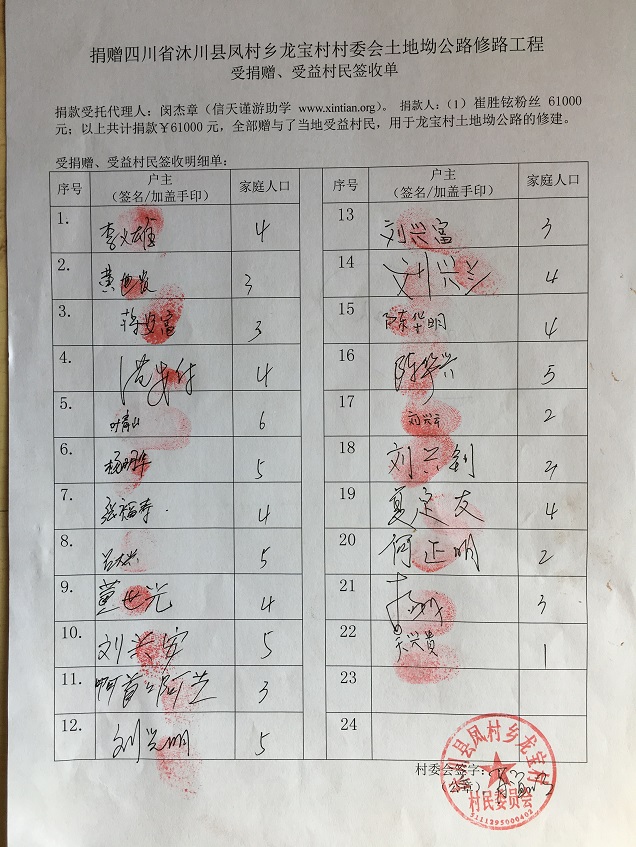 捐赠四川省沐川县凤村乡龙宝村村委会土地坳公路修路工程
受捐赠、受益村民签收单
捐款受托代理人：闵杰章（信天谨游助学 www.xintian.org）。捐款人：（1）崔胜铉粉丝 61000
元；以上共计捐款￥61000 元，全部赠与了当地受益村民，用于龙宝村土地坳公路的修建。
受捐赠、受益村民签收明细单：
序号 户主（签名/加盖手印） 家庭人口
1. 4
2. 3
3. 3
4. 4
5. 叶青山 6
6. 杨明华 5
7. 张福寿 4
8. 5
9. 董世光 4
10. 5
11. 3
12. 刘兴明 5
序号 户主（签名/加盖手印） 家庭人口
13 刘兴富 3
14 刘兴兰 4
15 陈华明 4
16 陈华兴 5
17 刘兴云 2
18 刘兴钊
19 夏定友 4
20 何正明 2
21 3
22 兴贵 1
23
24
村委会签字：
（公章）
县凤村乡龙宝村
村民委员会
5111295000402